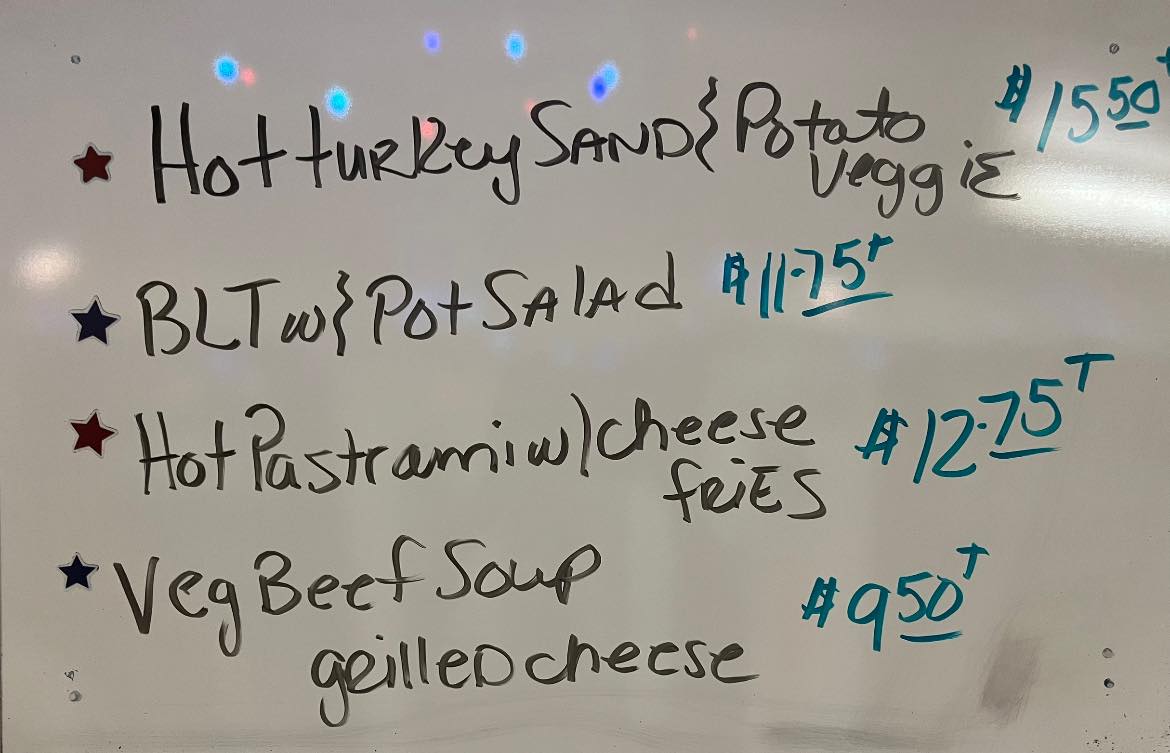 Hot turkey SAND } Potato $15.50+
Veggie
BLT w } Pot Salad $11.75+
Hot Pastrami w/ cheese $12.75T
fries
Veg Beef Soup $9.50T
grilled cheese